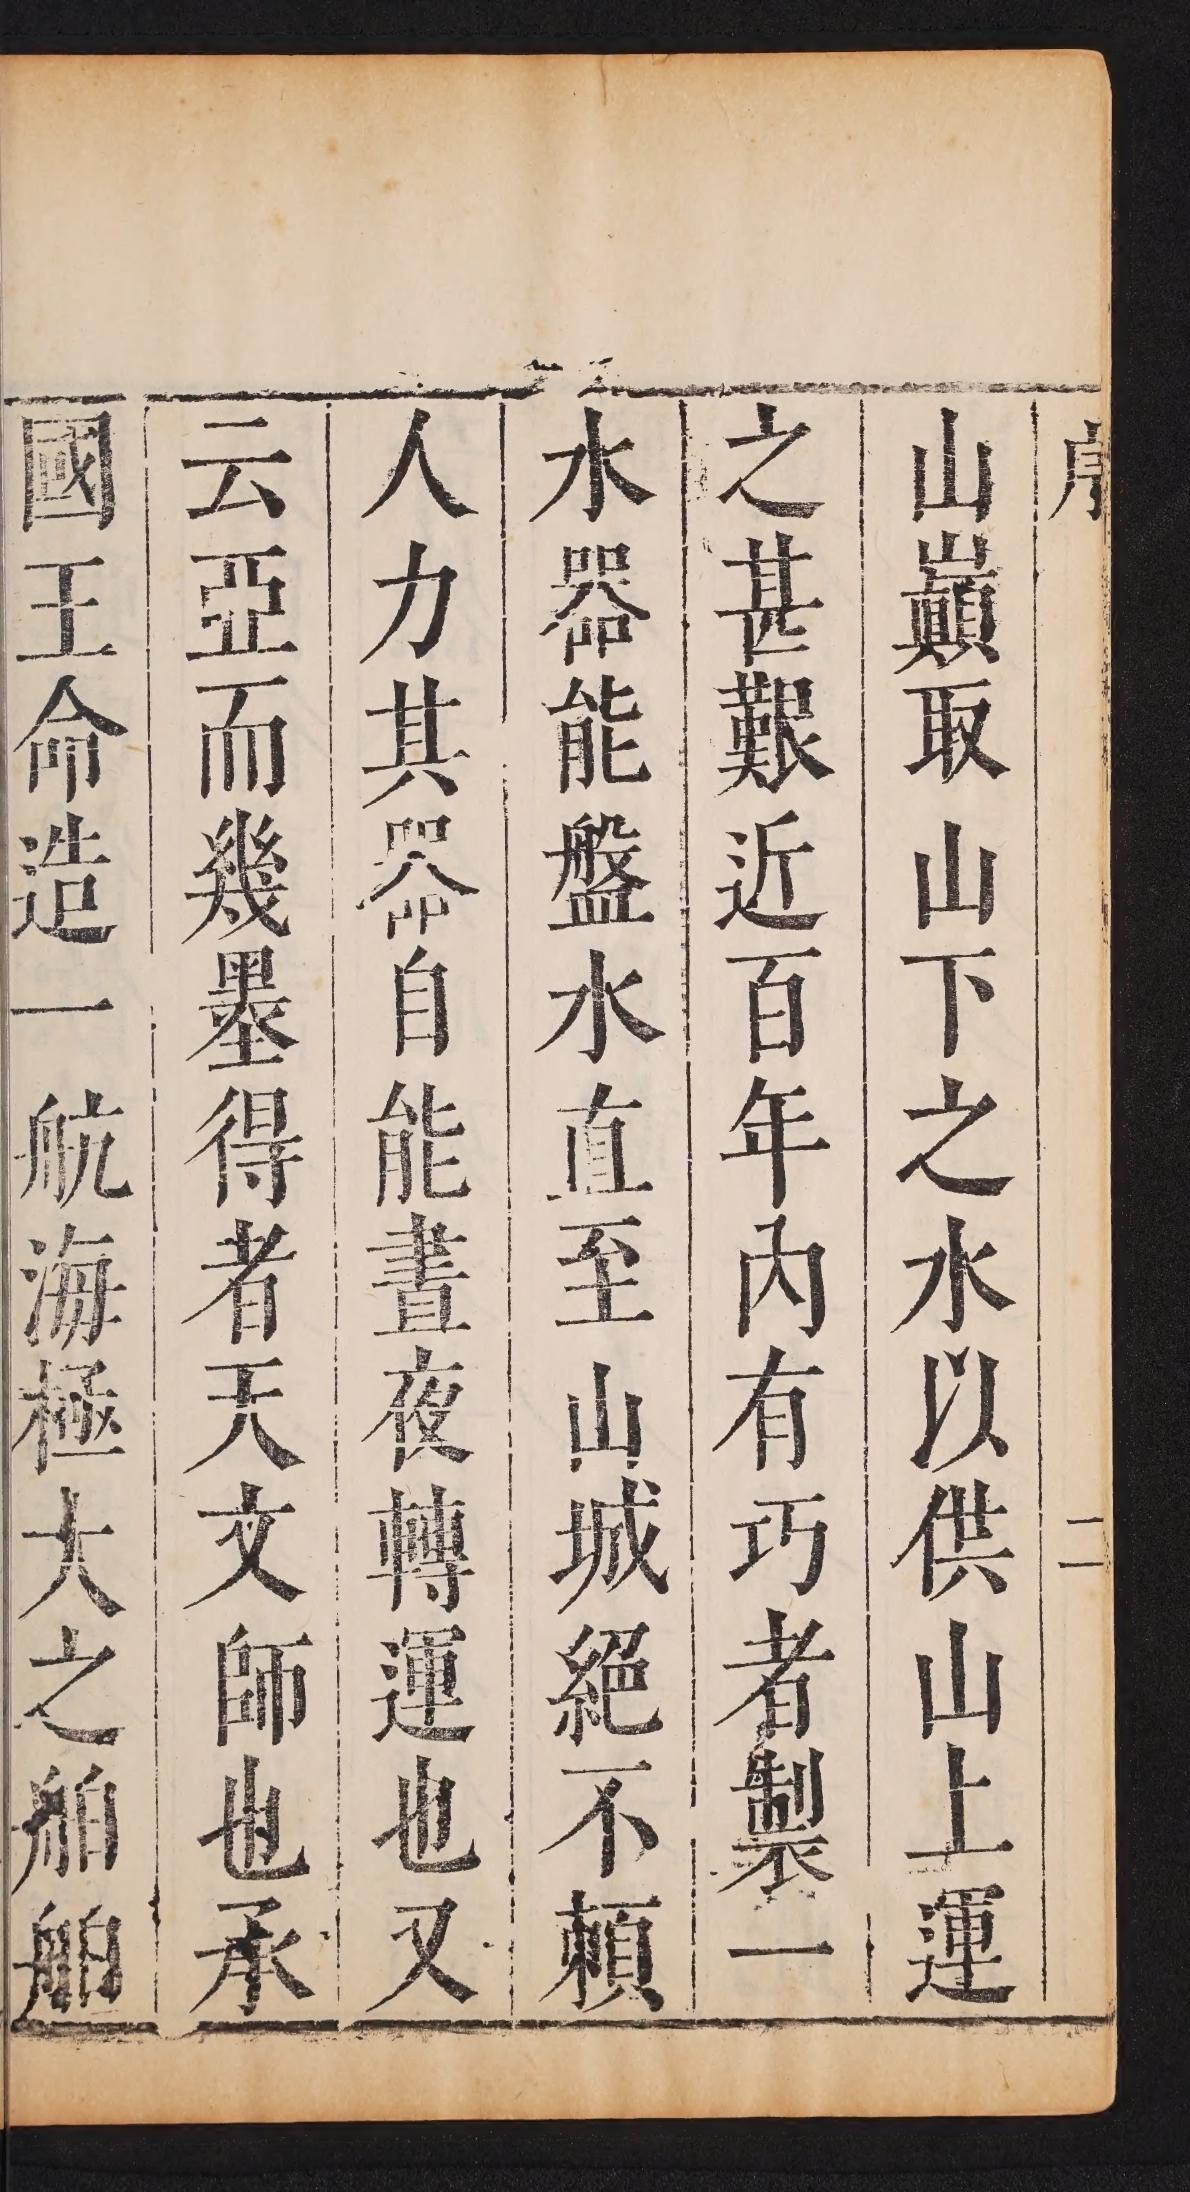 序
二
山巔取山下之水以供山上運
之甚艱近百年內有巧者製一
水器能盤水直至山城絕不賴
人力其器自能晝夜轉運也又
云亞而幾墨得者天文師也承
國王命造一航海極大之舶舶